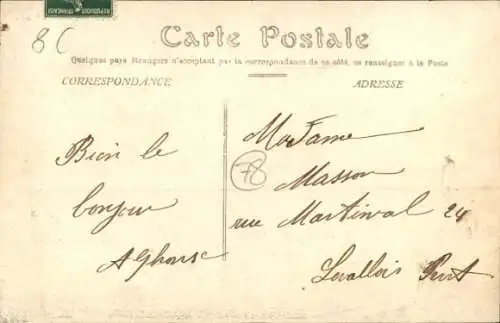 REPUBLIQUE FRANÇAISE
8C
Carte Postale
Quelques pays Etrangers n'acceptant pas la correspondance de ce côté, se renseigner à la Poste
CORRESPONDANCE
ADRESSE
Bien le
bonjour
Alphonse
78
Madame
Masson
rue Martinval 24
Levallois Perret